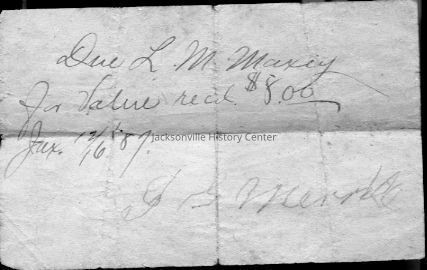 Due L. M. Maxey
For Value recd. $8.00
Jax. 12/16 87.
Jacksonville History Center